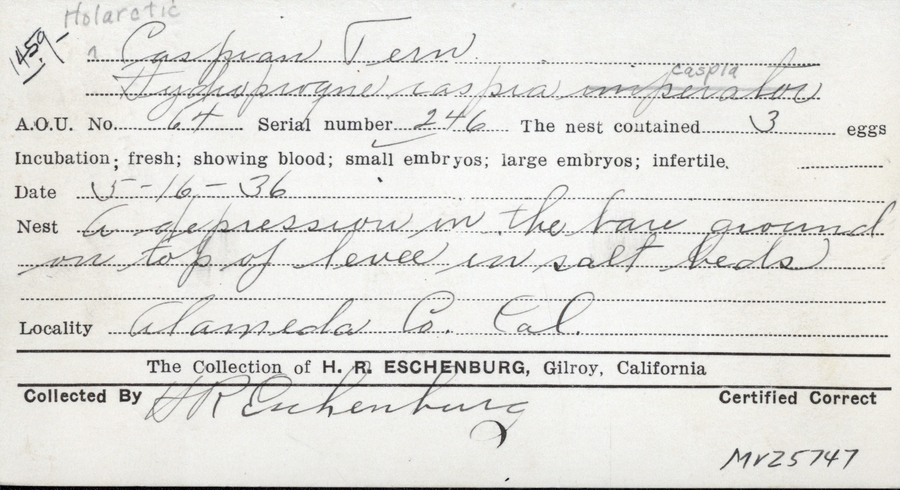 Holarctic
1459-
1 Caspian Tern
caspia
Hydroprogne caspia imperator
A.O.U. No. 64 Serial number 246 The nest contained 3 eggs
Incubation; fresh; showing blood; small embryos; large embryos; infertile.
Date 5-16-36
Nest A depression in the bare ground
on top of levee in salt beds
Locality Alameda Co. Cal.
The Collection of H. R. ESCHENBURG, Gilroy, California
Collected By H R Eschenburg Certified Correct
MVZ5747